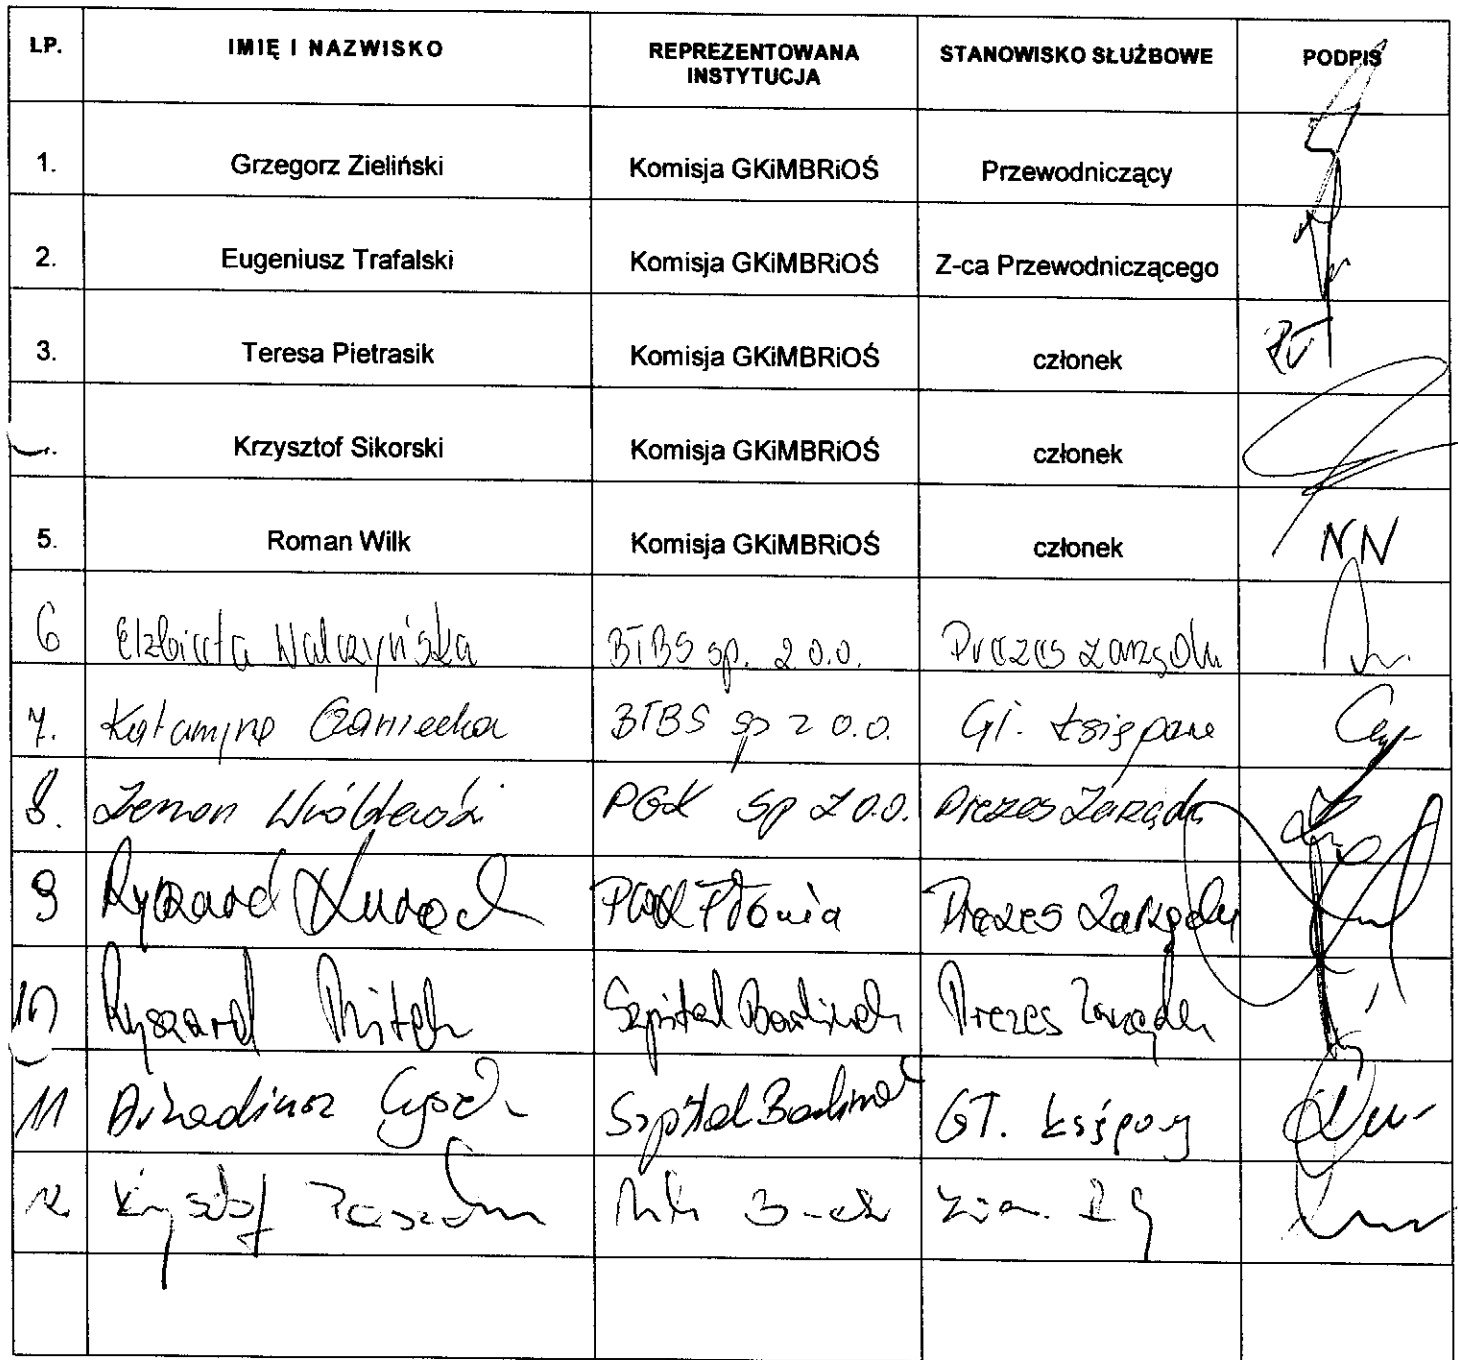 LP. IMIĘ I NAZWISKO REPREZENTOWANA INSTYTUCJA STANOWISKO SŁUŻBOWE PODPIS
1. Grzegorz Zieliński Komisja GKiMBRiOŚ Przewodniczący
2. Eugeniusz Trafalski Komisja GKiMBRiOŚ Z-ca Przewodniczącego
3. Teresa Pietrasik Komisja GKiMBRiOŚ członek
Krzysztof Sikorski Komisja GKiMBRiOŚ członek
5. Roman Wilk Komisja GKiMBRiOŚ członek NN
6 Elżbieta Walczyńska BTBS sp. z o.o. Prezes Zarządu
7. Katarzyna Czarnecka BTBS sp z o.o. Gł. księgowa
8. Zenon Wróblewski PGK sp z o.o. Prezes Zarządu
9 Ryszard Prezes Zarządu
10 Ryszard Szpital Barlinek Prezes Zarządu
11 Arkadiusz Szpital Barlinek Gł. księgowy
12 Krzysztof